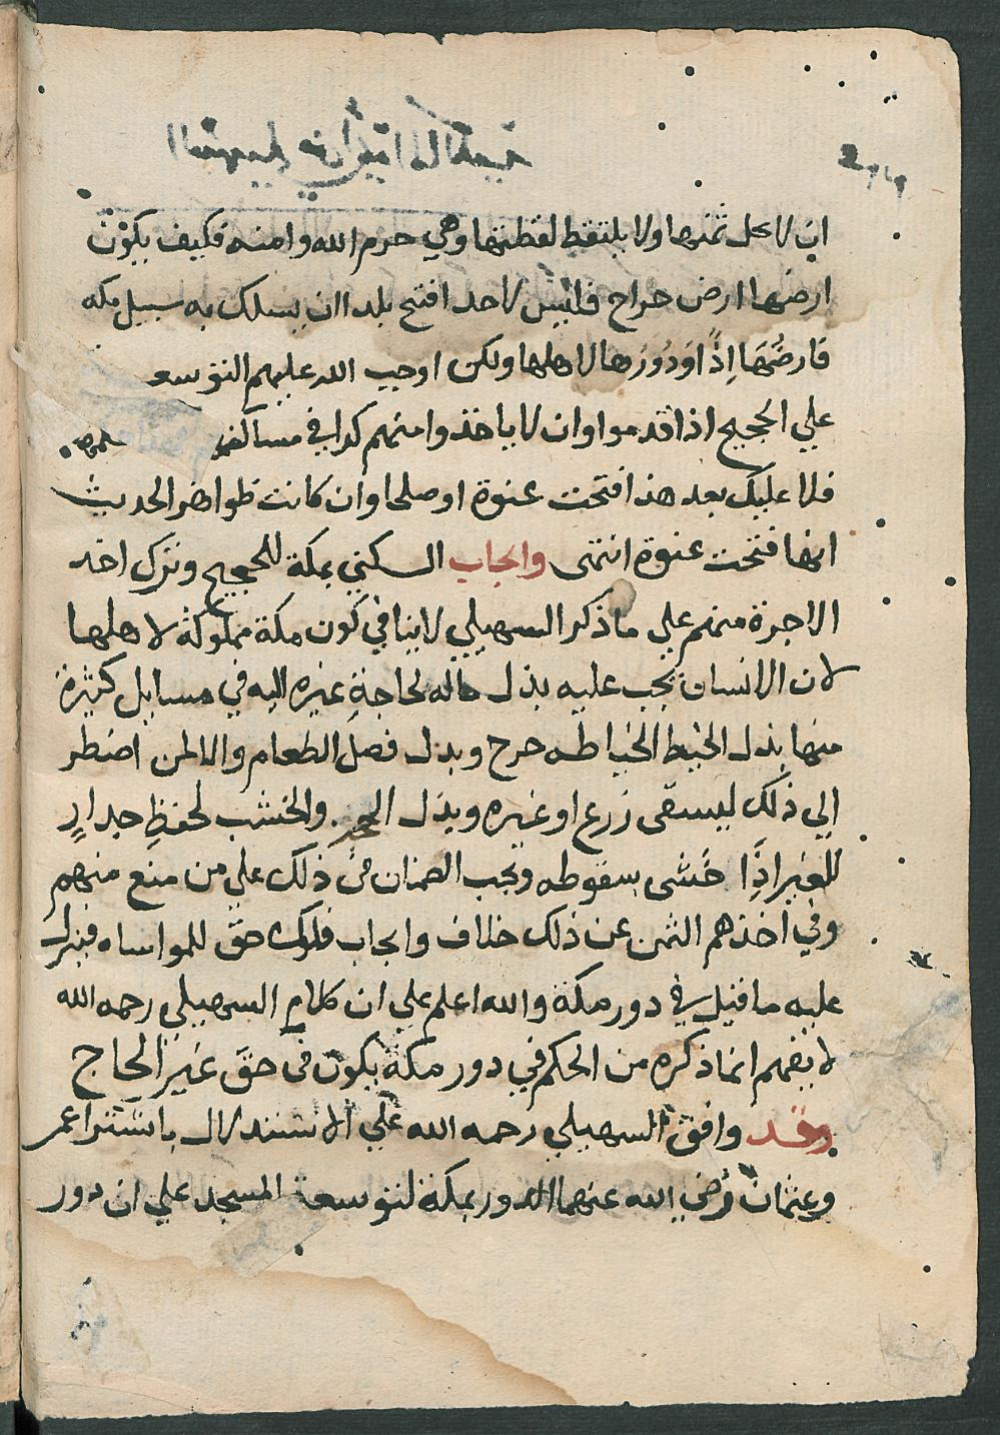 السهيلي من أئمة المالكية
ان لا يحل ثمنها ولا يلتقط لقطتها وهي حرم الله وامنه فكيف يكون
ارضها ارض خراج فليس لاحد افتح بلدا ان يسلك به سبيل مكه
فارضها إذًا ودورها لاهلها ولكن اوجب الله عليهم التوسعه
علي الحجيج اذا قدموا وان لا ياخذوا منهم كرا في مساكنها
فلا عليك بعد هذا فتحت عنوة او صلحا وان كانت ظواهر الحديث
انها فتحت عنوة انتهى وايجاب السكني بمكة للحجيج وترك اخذ
الاجرة منهم علي ما ذكر السهيلي لا ينافي كون مكة مملوكة لاهلها
لان الانسان يجب عليه بذل ماله لحاجة غيره اليه في مسايل كثيرة
منها بذل الخيط لخياطه جرح وبذل فضل الطعام والما لمن اضطر
الي ذلك ليسقى زرع او غيره وبذل الحجر والخشب لحفظ جدارٍ
للغير إذًا خشى سقوطه ويجب الضمان في ذلك علي من منع منهم
وفي اخذهم الثمن عن ذلك خلاف وايجاب فلوك حق للمواساه فينزل
عليه ما قيل في دور مكة والله اعلم علي ان كلام السهيلي رحمه الله
لا يفهم انما ذكره من الحكم في دور مكة يكون في حق غير الحاج
وقد وافق السهيلي رحمه الله علي الاستدلال باشترا عمر
وعثمان رضي الله عنهما الدور بمكة لتوسعة المسجد علي ان دور